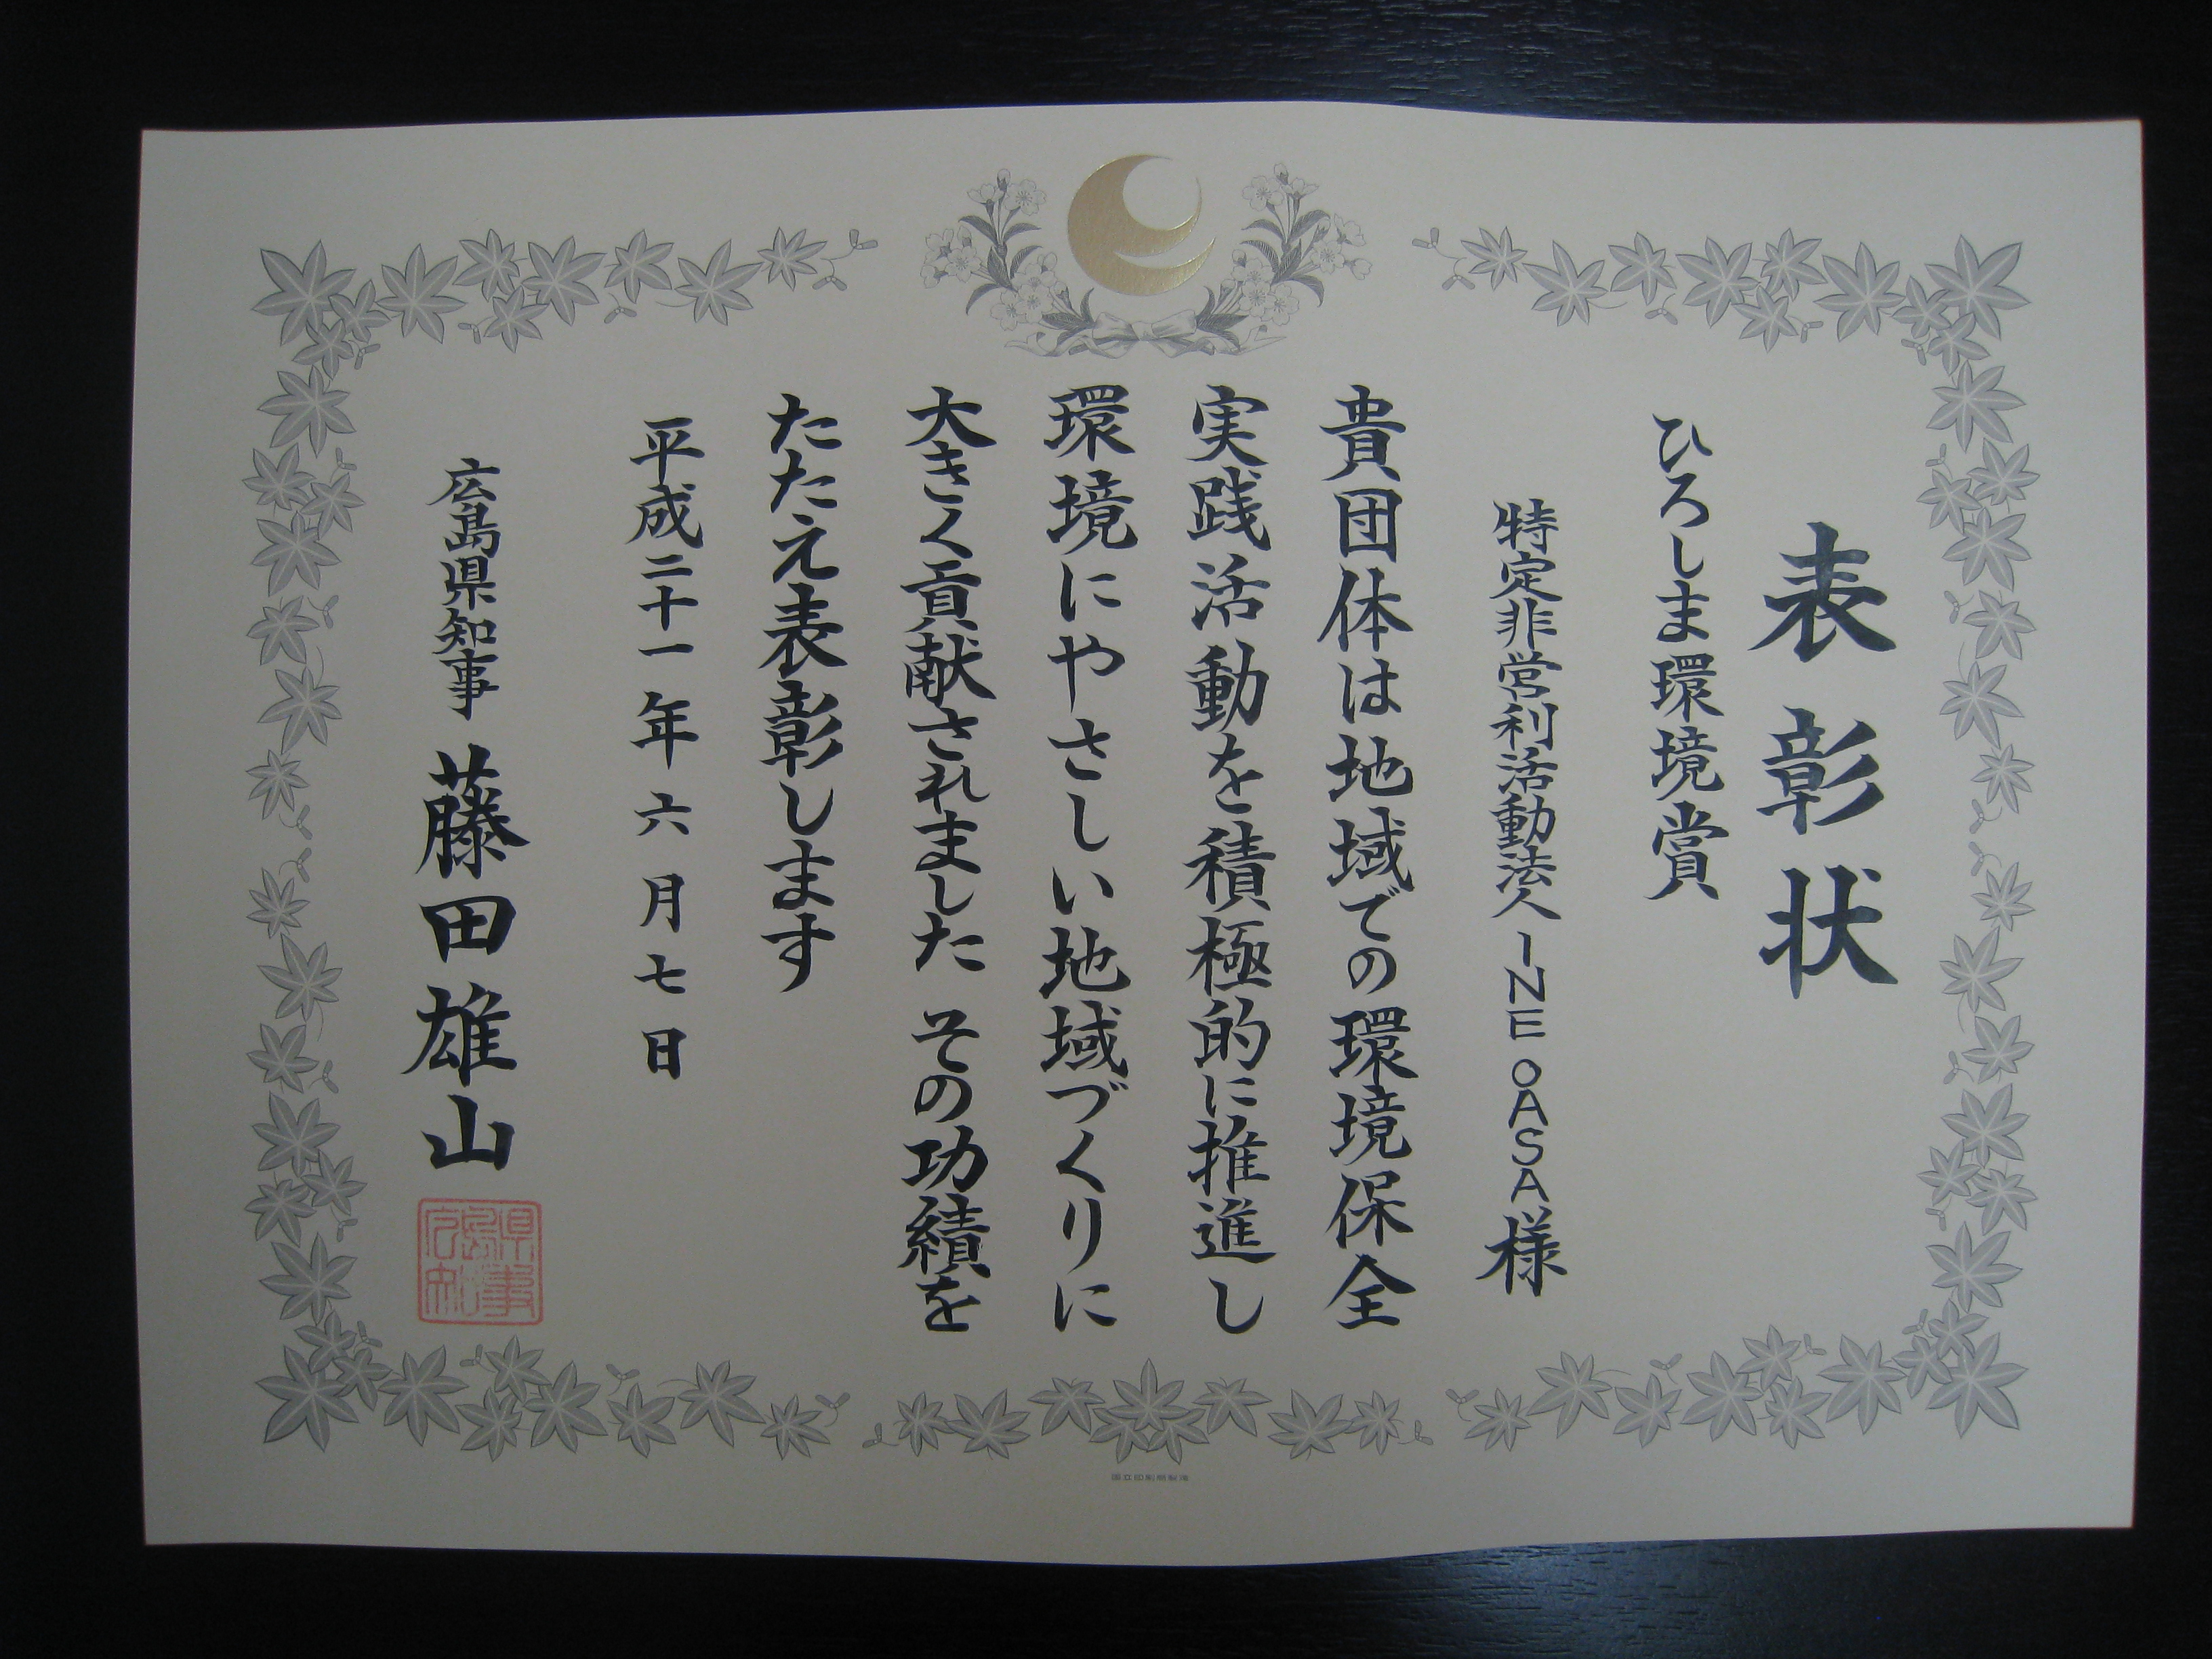 表彰状
ひろしま環境賞
特定非営利活動法人 INE OASA 様
貴団体は地域での環境保全
実践活動を積極的に推進し
環境にやさしい地域づくりに
大きく貢献されました その功績を
たたえ表彰します
平成二十一年六月七日
広島県知事 藤田雄山
広島県知事
国立印刷局製造